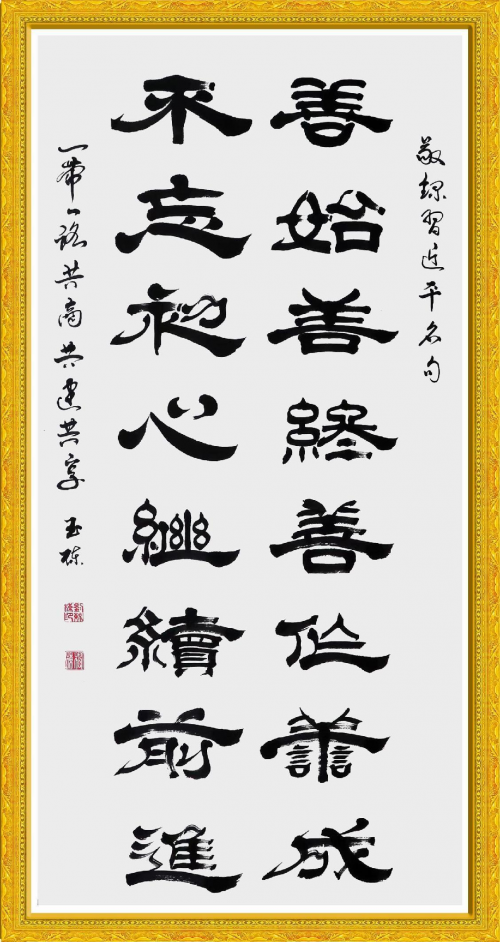 敬錄習近平名句
善始善終善作譱成
不忘初心繼續前進
一帶一路共商共建共享 玉棟